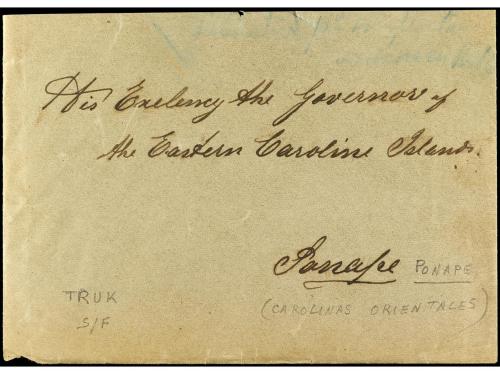 His Exelency the Governor of
the Eastern Caroline Islands.
Ponape PONAPE
(CAROLINAS ORIENTALES)
TRUK
S/F